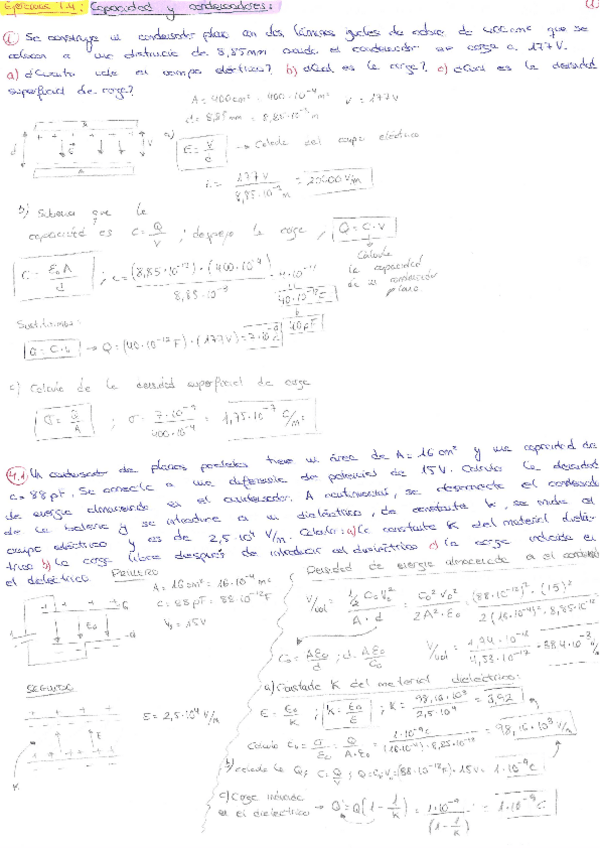 Ejercicios T.4: Capacidad y condensadores:
① Se construye un condensador plano con dos láminas iguales de cobre de 400 cm² que se
colocan a una distancia de 8,85mm cuando el condensador se carga a 177V.
a) ¿Cuánto vale el campo eléctrico? b) ¿Cuál es la carga? c) ¿Cuál es la densidad
superficial de carga?
A = 400cm² = 400·10⁻⁴m² V = 177V
d = 8,85mm = 8,85·10⁻³m
a) E = V/d → Calculo del campo eléctrico
177V / 8,85·10⁻³m = 20000 V/m
b) Sabemos que la
capacidad es C = Q/V ; despejo la carga, Q = C·V
Calculo
la capacidad
de un condensador
plano
C = ε₀A/d ; C = (8,85·10⁻¹²)·(400·10⁻⁴) / 8,85·10⁻³
40·10⁻¹²F
40pF
Sustituimos:
→ Q = (40·10⁻¹²F)·(177V) = 7·10⁻⁹C
c) Calculo de la densidad superficial de carga
σ = Q/A ; σ = 7·10⁻⁹ / 400·10⁻⁴ = 1,75·10⁻⁷ C/m²
Un condensador de planos paralelos tiene un área de A = 16cm² y una capacidad de
C = 88pF. Se conecta a una diferencia de potencial de 15V. Calcula la densidad
de energía almacenada en el condensador. A continuación, se desconecta el condensador
de la batería y se introduce en un dieléctrico, de constante k, se mide el
campo eléctrico y es de 2,5·10⁴ V/m. Calcula: a) la constante K del material dieléc-
trico b) la carga libre después de introducir el dieléctrico c) la carga inducida en
el dieléctrico
PRIMERO
A = 16cm² = 16·10⁻⁴m²
C = 88pF = 88·10⁻¹²F
V₀ = 15V
SEGUNDO
E = 2,5·10⁴ V/m
K
Densidad de energía almacenada en el condensador
C₀ = Aε₀/d ; d = Aε₀/C₀
a) Constante K del material dieléctrico:
E = E₀/k ; k = E₀/E ; k = 98,16·10³ / 2,5·10⁴ = 3,92
= 98,16·10³ V/m
b) calculo la Q; C = Q/V ; Q = C₀·V₀ = (88·10⁻¹²F)·15V = 1·10⁻⁹C
c) Carga inducida
en el dieléctrico → Q' = Q(1 - 1/k)